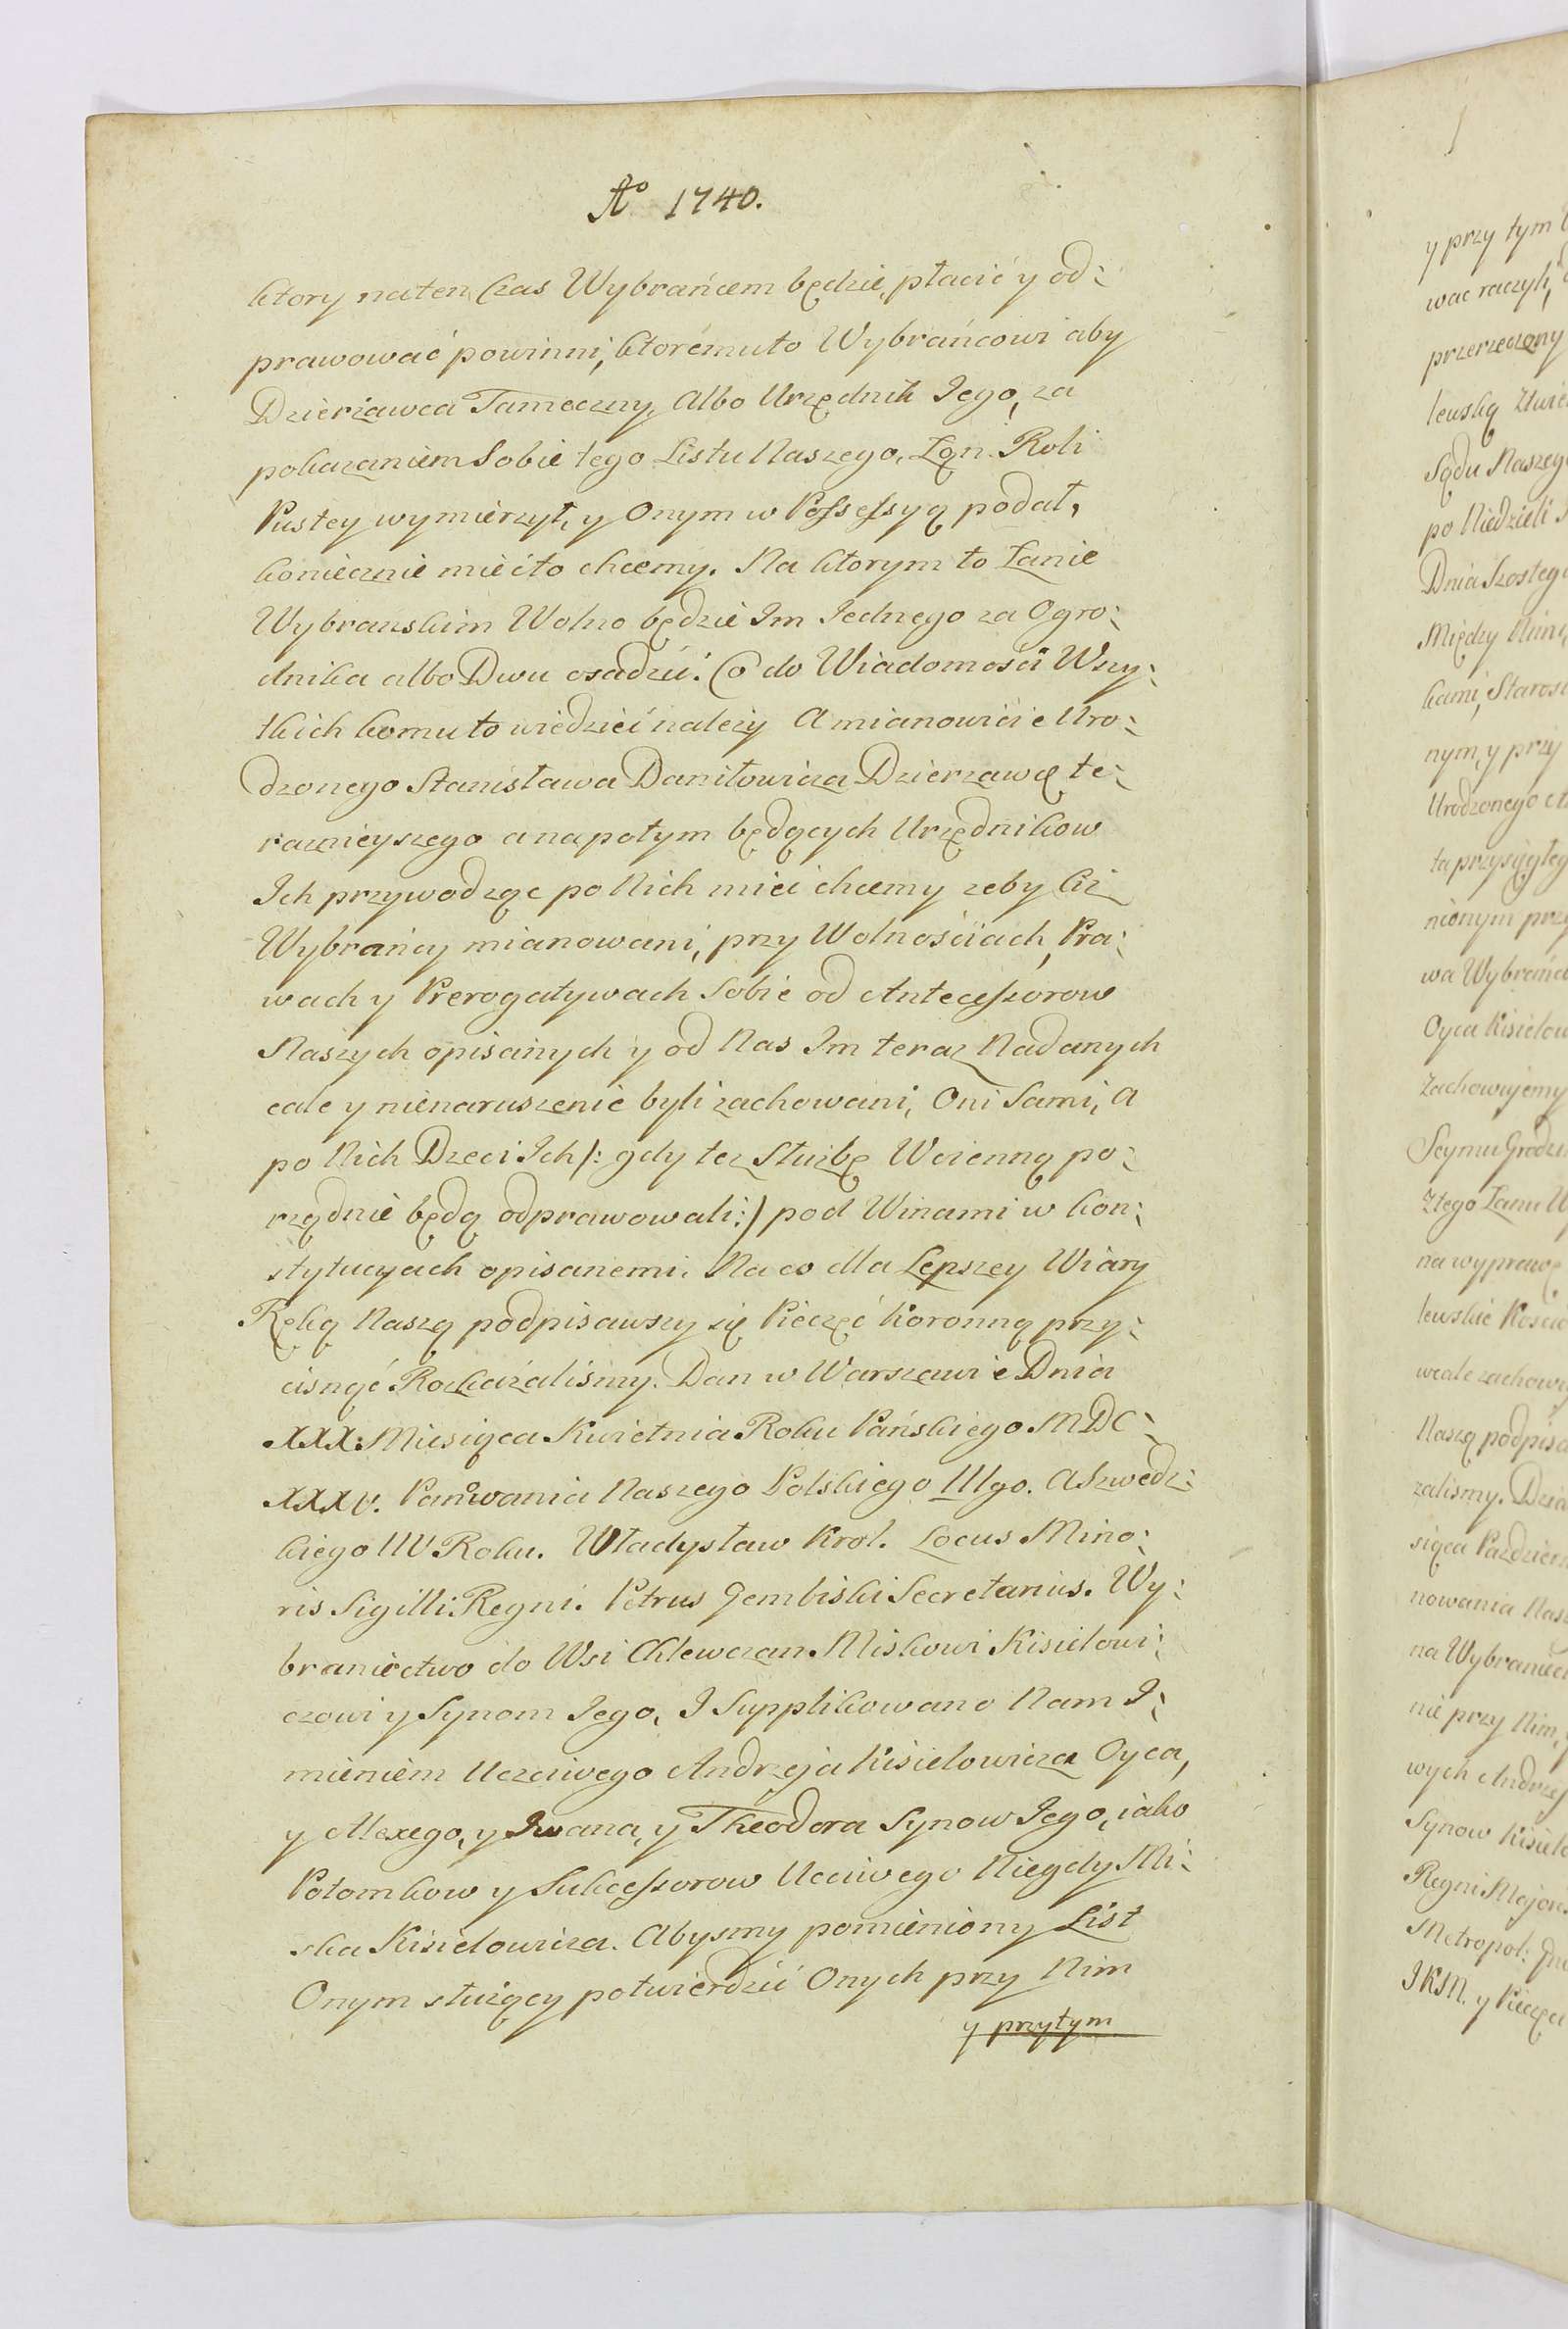 Ao 1740.
ktory naten Czas Wybrańcem będzie, płacić y od:
prawować powinni, ktoremuto Wybrańcowi aby
Dzierzawca Tameczny, Albo Urzędnik Jego, za
pokazaniem Sobie tego Listu Naszego, Łąn Roli
Pustey wymierzył, y Onym w Possessyą podał,
koniecznie miećto chcemy. Na ktorym to Łanie
Wybrańskim Wolno będzie Im Jednego za Ogro:
dnika albo Dwu osadzić. Co do Wiadomości Wszy:
tkich komu to wiedzieć nalezy A mianowicie Uro:
dzonego Stanisława Daniłowicza Dzierzawcę te:
raznieyszego a napotym będących Urzędnikow
Ich przywodząc po Nich mieć chcemy zeby Ci
Wybrańcy mianowani, przy Wolnościach, Pra:
wach y Prerogatywach Sobie od Antecessorow
Naszych opisanych y od Nas Im teraz Nadanych
cale y nienaruszenie byli zachowani, Oni Sami, A
po Nich Dzeci Ich /: gdy tez Służbę Woienną po:
rządnie będą odprawowali :/ pod Winami w kon:
stytucyach opisanemi. Na co dla Lepszey Wiary
Ręką Naszą podpisawszy się Pieczęć Koronną przy:
cisnąć Rozkazaliśmy. Dan w Warszawie Dnia
XXX: Miesiąca Kwietnia Roku Pańskiego MDC:
XXXV. Panowania Naszego Polskiego IIIgo. A Szwedz:
kiego IIV Roku. Władysław Krol. Locus Mino:
ris Sigilli Regni. Petrus Gembiski Secretarius. Wy:
braniectwo do Wsi Chlewczan Miskowi Kisielowi:
czowi y Synom Jego. I Supplikowano Nam I:
mieniem Uczciwego Andrzeja Kisielowicza Oyca,
y Alexego, y Iwana, y Theodora Synow Jego, iako
Potomkow y Sukcessorow Uczciwego Niegdy Mi:
ska Kisielowicza. Abysmy pomieniony List
Onym służący potwierdzić Onych przy Nim
y przytym
y przy tym
wac raczyli,
przerzeczony
lewską
Sądu Naszego
po Niedzieli
Dnia Szostego
Między
kami, Staros
nym, y przy
Urodzonego
ta przysięgłeg
nionym prze
wa Wybrańc
Oyca Kisielow
Zachowujemy
Seymu Grodzi
Ztego Łanu W
na wyprawę
lewskie
wcale zachow
Naszą podpisa
zalismy. Dzia
siąca Pazdzier
nowania Nasz
na Wybraniec
nie przy Nim,
wych Andrzej
Synow Kisielo
Regni Majoris
Metropol:
JKM. y Pieczęci